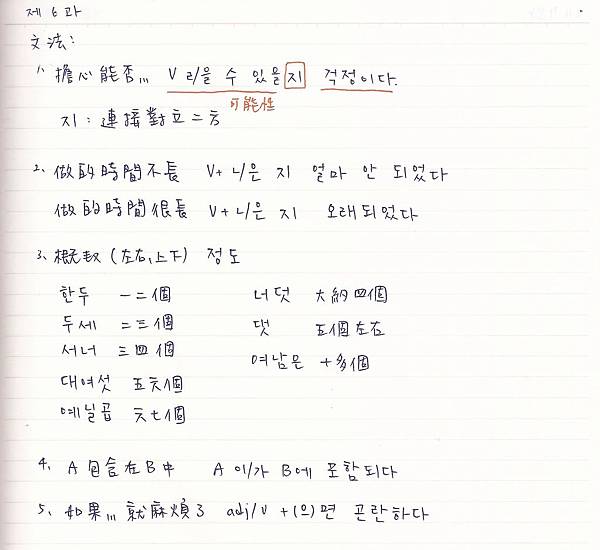 제 6 과
文法:
1、擔心能否... V ㄹ/을 수 있을지 걱정이다.
可能性
지 : 連接對立二方
2、做的時間不長 V+ ㄴ/은 지 얼마 안 되었다
做的時間很長 V+ㄴ/은 지 오래되었다
3、概數 (左右,上下) 정도
한두 一二個 너덧 大約四個
두세 二三個 댓 五個左右
서너 三四個 여남은 十多個
대여섯 五六個
예닐곱 六七個
4、A 包含在B中 A 이/가 B에 포함되다
5、如果... 就麻煩了 adj/V +(으)면 곤란하다